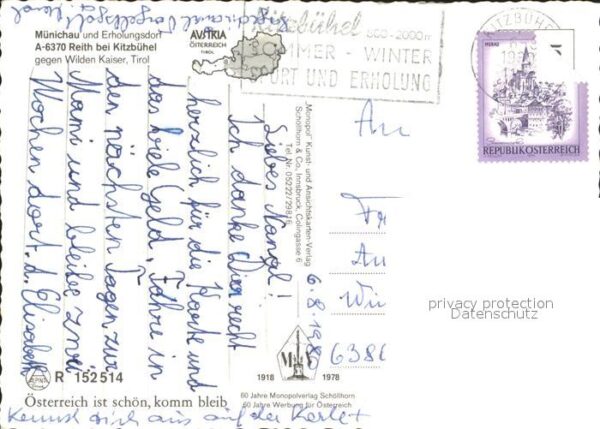 Münichau und Erholungsdorf
A-6370 Reith bei Kitzbühel
gegen Wilden Kaiser, Tirol
AUSTRIA
ÖSTERREICH
TIROL
Kitzbühel 800-2000m
SOMMER - WINTER
SPORT UND ERHOLUNG
KITZBÜHEL
REPUBLIK ÖSTERREICH
Liebes Nanal!
Ich danke Dir recht
herzlich für die Karte und
das viele Geld. Fahre in
den nächsten Tagen zur
Mami und bleibe zwei
Wochen dort. d. Elisabeth
6.8.1980
"Monopol" Kunst- und Ansichtskarten-Verlag
Schöllhorn & Co., Innsbruck, Colingasse 6
Tel. Nr. 05222/29816
An
Fr
An
Wi
6380
privacy protection
Datenschutz
R 152514
1918 1978
60 Jahre Monopolverlag Schöllhorn
60 Jahre Werbung für Österreich
Österreich ist schön, komm bleib
Kennst dich aus auf der Karte